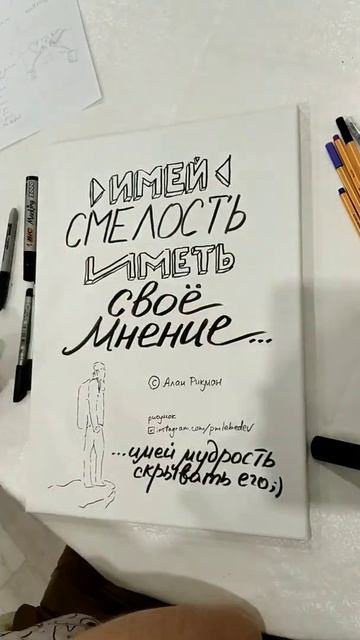 ИМЕЙ
СМЕЛОСТЬ
ИМЕТЬ
своё
мнение...
© Алан Рикман
рисунок
instagram.com/pmlebedev
...имей мудрость
скрывать его;)
Marking